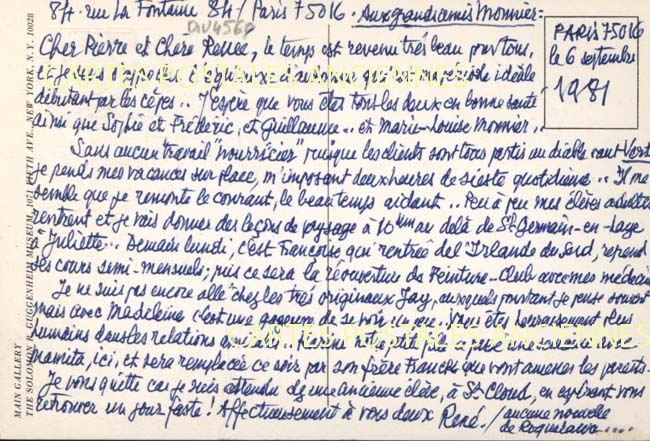 84 rue La Fontaine 84 / Paris 75016. Aux grands amis Monnier:
av4569
PARIS 75016
le 6 septembre
1981
Cher Pierre et Chère Renée, le temps est revenu très beau pour tous,
et je vous
débutant par les cèpes.. J'espère que vous êtes tous les deux en bonne santé
ainsi que Sophie et Frédéric, et Guillaume.. et Marie-Louise Monnier..
Sans aucun travail "nourricier" puisque les clients sont tous partis au diable vauvert
je prends mes vacances sur place, m'imposant deux heures de sieste quotidienne.. Il me
semble que je remonte le courant, le beau temps aidant.. Peu à peu mes élèves adultes
rentrent et je vais donner des leçons de paysage à 10 km au delà de St Germain-en-Laye
à "Juliette".. Demain lundi, c'est Françoise qui rentrée de l'Irlande du Sud, reprend
ses cours semi-mensuels; puis ce sera la réouverture de Peinture-Club avec mes médecins
Je ne suis pas encore allé chez les très originaux Jay, auxquels pourtant je pense souvent
mais avec Madeleine c'est une gageure de se voir un peu. Vous êtes heureusement plus
humains dans les relations
mamita, ici, et sera remplacée ce soir par son frère Franck que vont amener les parents.
Je vous quitte car je suis attendu d'une ancienne élève, à St Cloud, en espérant vous
retrouver un jour faste! Affectueusement à vous deux René. / aucune nouvelle
de
MAIN GALLERY
THE SOLOMON R. GUGGENHEIM MUSEUM, 1071 FIFTH AVE., NEW YORK, N.Y. 10028
CARTES POSTALES ANCIENNES
CARTES POSTALES ANCIENNES